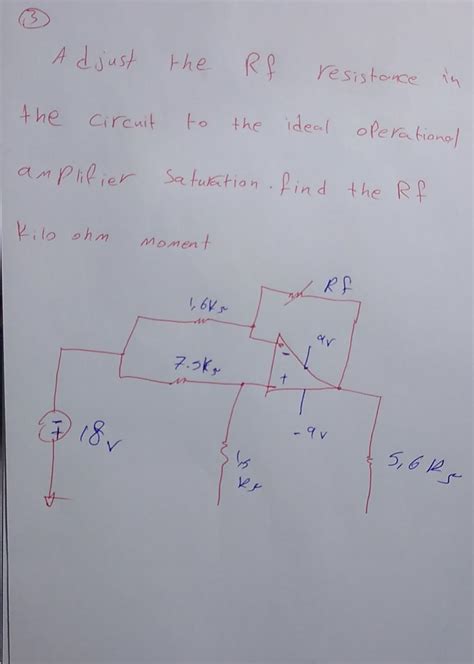 3
Adjust the Rf resistance in
the circuit to the ideal operational
amplifier saturation. find the Rf
kilo ohm moment
Rf
1,6KΩ
9v
7.5KΩ
-
+
-9v
18v
1,5
KΩ
5,6KΩ